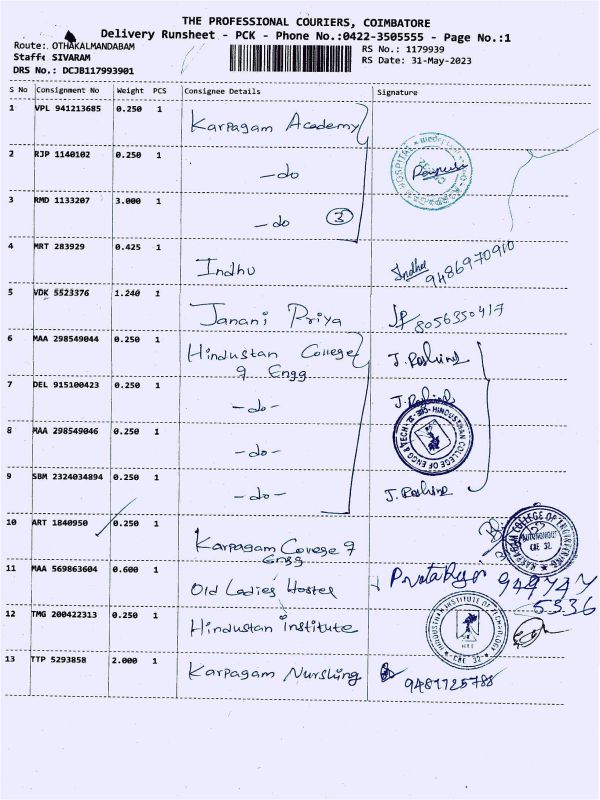 THE PROFESSIONAL COURIERS, COIMBATORE
Delivery Runsheet - PCK - Phone No.:0422-3505555 - Page No.:1
Route: OTHAKALMANDABAM RS No.: 1179939
Staff: SIVARAM RS Date: 31-May-2023
DRS No.: DCJB117993901
S No Consignment No Weight PCS Consignee Details Signature
1 VPL 941213685 0.250 1 Karpagam Academy
2 RJP 1140102 0.250 1 -do
3 RMD 1133207 3.000 1 -do 3
4 MRT 283929 0.425 1 Indhu Indhu 9486970910
5 VDK 5523376 1.240 1 Janani Priya JP 8056350417
6 MAA 298549044 0.250 1 Hindustan College
9 Engg
7 DEL 915100423 0.250 1 -do-
8 MAA 298549046 0.250 1 -do- HINDUSTHAN COLLEGE OF ENGG & TECH
9 SBM 2324034894 0.250 1 -do-
10 ART 1840950 0.250 1 Karpagam College 9
Engg KARPAGAM COLLEGE OF ENGINEERING
11 MAA 569863604 0.600 1 Old Ladies Hostel 949747
5336
12 TMG 200422313 0.250 1 Hindustan Institute HINDUSTHAN INSTITUTE OF TECHNOLOGY CBE 32
13 TTP 5293858 2.000 1 Karpagam Nursing 9487725788